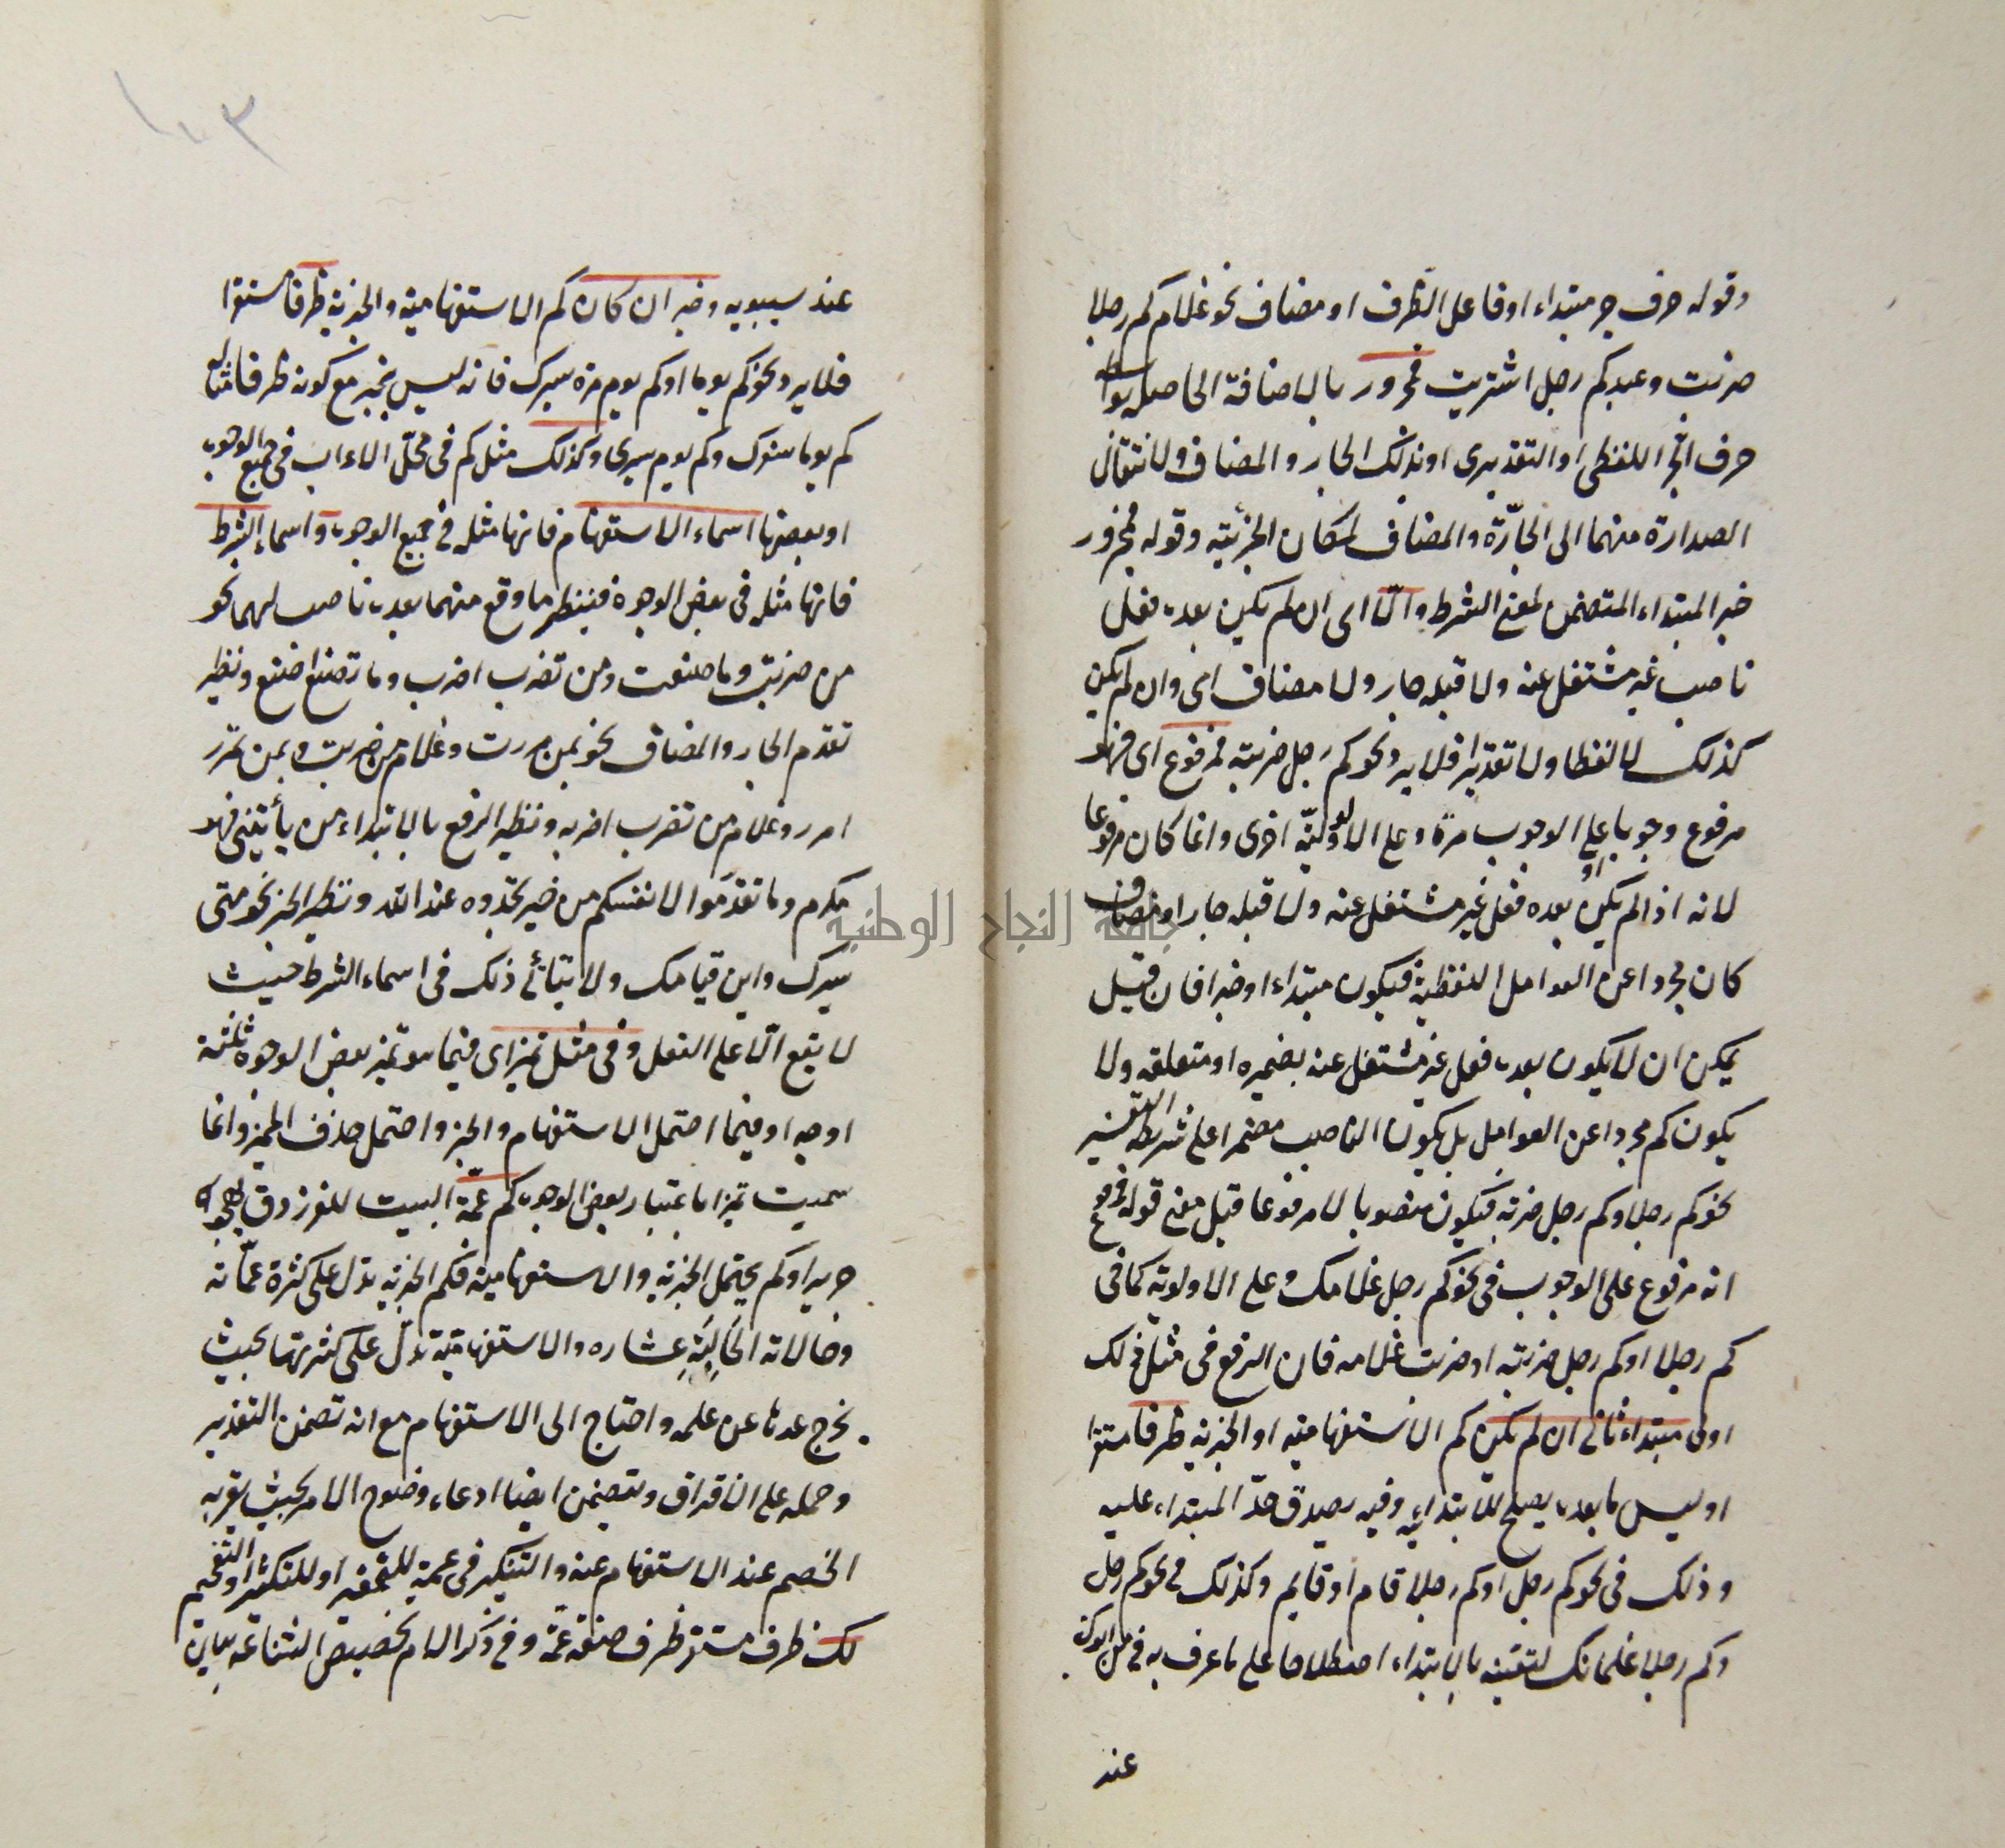 وقوله حرف جر مبتداء او فاعل الظرف او مضاف نحو غلام كم رجلا
ضربت وعبد كم رجل اشتريت فمجرور بالاضافة الحاصلة بواسطة
حرف الجر اللفظى او التقديرى او بذلك الجار والمضاف ولانتقال
الصدارة منهما الى الجارّة والمضاف لمكان الجزئية وقوله فمجرور
خبر المبتداء المتضمن لمعنى الشرط والّا اى ان لم يكن بعده فعل
ناصب غير مشتغل عنه ولا قبله جار ولا مضاف اى وان لم يكن
كذلك لا لفظا ولا تقديرا فلا يرد نحو كم رجل ضربته فمرفوع اى فهو
مرفوع وجوبا على الوجوب مرة وعلى الاولوليّة اخرى وانما كان مرفوعا
لانه اذا لم يكن بعده فعل غير مشتغل عنه ولا قبله جار او مضاف
كان مجردا عن العوامل اللفظية فيكون مبتداء او خبرا فان قيل
يمكن ان لا يكون بعده فعل غير مشتغل عنه بضميره او متعلقه ولا
يكون كم مجردا عن العوامل بل يكون الناصب مضمرا على شريطة التفسير
نحو كم رجلا وكم رجل ضربته فيكون منصوبا لا مرفوعا قيل معنى قوله فمرفوع
انه مرفوع على الوجوب فى نحو كم رجل غلامك وعلى الاولوية كما فى
كم رجلا او كم رجل ضربته او ضربت غلامه فان الرفع فى مثل ذلك
اولى مبتداء ثانى ان لم يكن كم الاستفهامية او الخبرية ظرفا مستقرا
او ليس ما بعده يصلح للابتدائية وفيه يصدق حدّ المبتداء عليه
وذلك فى نحو كم رجل او كم رجلا قام او قايم وكذلك فى نحو كم رجل
وكم رجلا غلمانك لتعينه بالابتداء اصطلاحا على ما عرف به فى
عند
١٠٣
عند سيبويه وخبر ان كان كم الاستفهامية والخبرية ظرفا مستقرا
فلا يرد نحو كم يوما او كم يوم مرة سيرك فانه ليس بخبر مع كونه ظرفا مثاله
كم يوما سفرك وكم يوم سيرى وكذلك مثل كم فى محلّ الاعراب فى جميع الوجوه
او بعضها اسماء الاستفهام فانها مثله فى جميع الوجوه واسماء الشرط
فانها مثله فى بعض الوجوه فينظر ما وقع منهما بعده ناصب لهما نحو
من ضربت وما صنعت ومن تضرب اضرب وما تصنع اصنع ونظير
تقدم الجار والمضاف نحو بمن مررت وغلام من ضربت وبمن تمرر
امرر وغلام من تضرب اضربه ونظير الرفع بالابتداء من يأتينى فهو
مكرم وما تقدموا لانفسكم من خير تجدوه عند الله ونظير الخبر نحو متى
سيرك واين قيامك ولا يتأتى ذلك فى اسماء الشرط حيث
لا يقع الّا على الفعل وفى مثل تميز اى فيما هو تميز بعض الوجوه ثلثة
اوجه او فيما احتمل الاستفهام والخبر واحتمل حذف المميز وانما
سميت تميزا باعتبار بعض الوجوه كم عمّة البيت للفرزدق يهجو به
جريرا وكم يحتمل الخبرية والاستفهامية فكم الخبرية تدل على كثرة عمّاته
وخالاته الحالِبَةِ عشاره والاستفهامية تدلّ على كثرتها بحيث
يخرج عدها عن علمه واحتاج الى الاستفهام مع انه تضمن التقدير
وحمله على الاقرار وتضمن ايضا ادعاء وضوح الامر بحيث يقر به
الخصم عند الاستفهام عنه والتنكير فى عمة للتحقير او للتكثير او التفخيم
لك ظرف مستقر ظرف صفة عمّة وفى ذكر اللام تخصيص الشناعة بيان